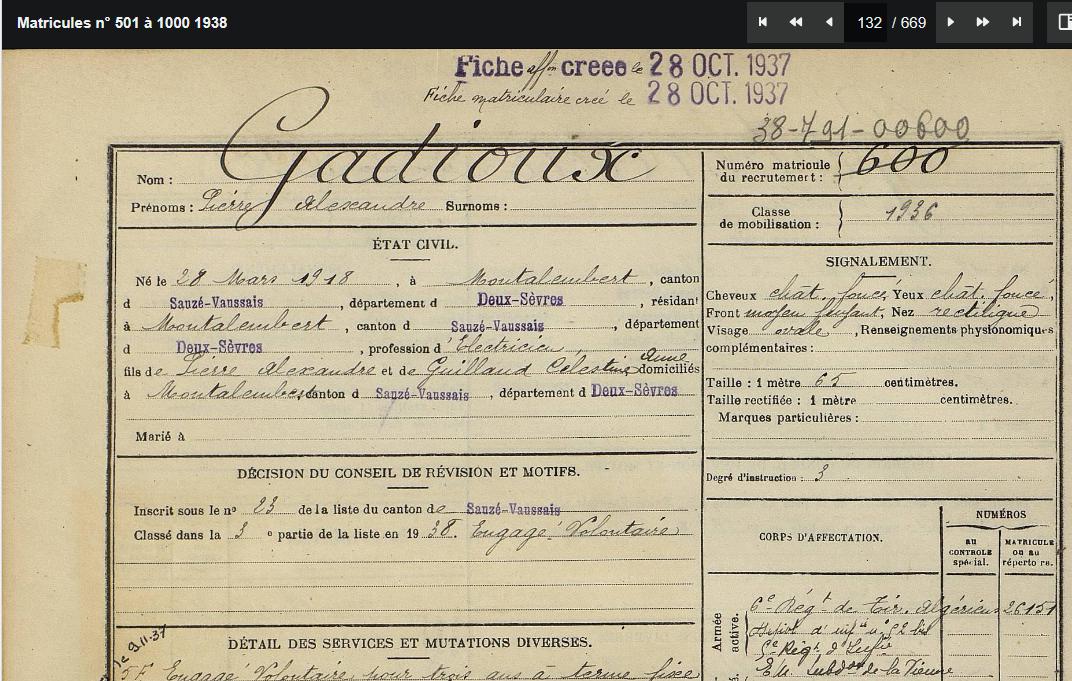 Matricules n° 501 à 1000 1938
132 / 669
Fiche affon créée le 28 OCT. 1937
Fiche matriculaire créé le 28 OCT. 1937
38-791-00600
Nom : Gadioux
Prénoms : Pierre Alexandre Surnoms :
Numéro matricule du recrutement : 600
Classe de mobilisation : 1936
ÉTAT CIVIL.
Né le 28 Mars 1918, à Montalembert, canton
d Sauzé-Vaussais, département d Deux-Sèvres, résidant
à Montalembert, canton d Sauzé-Vaussais, département
d Deux-Sèvres, profession d'Electricien,
fils de Pierre Alexandre et de Guillaud Célestine Anne domiciliés
à Montalembert canton d Sauzé-Vaussais, département d Deux-Sèvres
Marié à
SIGNALEMENT.
Cheveux chât. foncé, Yeux chât. foncé,
Front moyen fuyant, Nez rectiligne
Visage ovale, Renseignements physionomiques
complémentaires :
Taille : 1 mètre 65 centimètres.
Taille rectifiée : 1 mètre centimètres.
Marques particulières :
Degré d'instruction : 3
DÉCISION DU CONSEIL DE RÉVISION ET MOTIFS.
Inscrit sous le n° 23 de la liste du canton de Sauzé-Vaussais
Classé dans la 3e partie de la liste en 1938. Engagé Volontaire
CORPS D'AFFECTATION.
NUMÉROS
au CONTROLE spécial.
MATRICULE ou au répertoire.
Armée active.
6e Régt de Tir. Algériens 26151
Dépôt d'infie n° 92 bis
Régt d'Infie
E.M. Subdon de la Vienne
le 9.11.37
DÉTAIL DES SERVICES ET MUTATIONS DIVERSES.
Engagé Volontaire pour trois ans à terme fixe